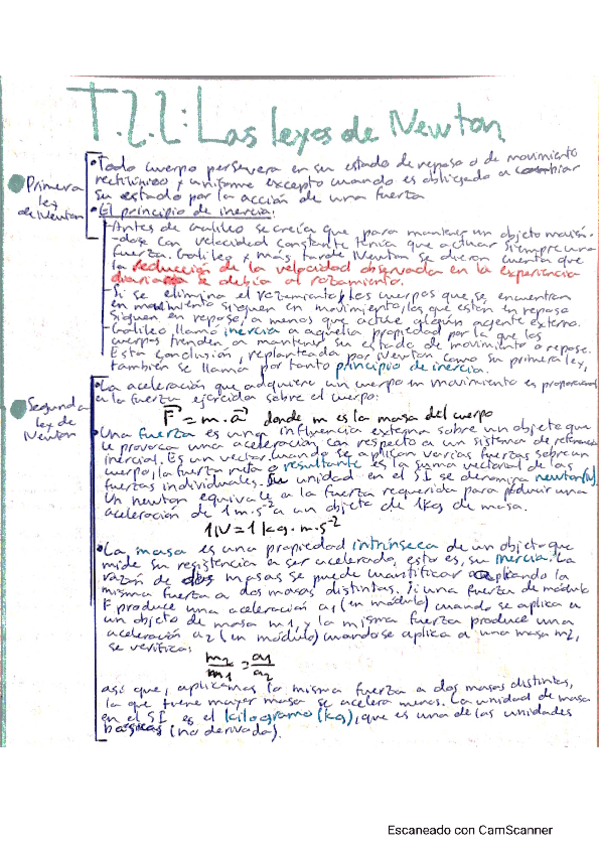 T.2.2: Las leyes de Newton
Primera ley de Newton
• Todo cuerpo persevera en su estado de reposo o de movimiento
rectilíneo y uniforme excepto cuando es obligado a cambiar
su estado por la acción de una fuerza
• El principio de inercia:
-Antes de Galileo se creía que para mantener un objeto movién-
-dose con velocidad constante tenía que actuar siempre una
fuerza. Galileo y más tarde Newton se dieron cuenta que
la reducción de la velocidad observada en la experiencia
diaria se debía al rozamiento.
- Si se elimina el rozamiento, los cuerpos que se encuentran
en movimiento siguen en movimiento, los que están en reposo
siguen en reposo, a menos que actúe algún agente externo.
- Galileo llamó inercia a aquella propiedad por la que los
cuerpos tienden a mantener su estado de movimiento o reposo.
Esta conclusión, replanteada por Newton como su primera ley,
también se llama por tanto principio de inercia.
Segunda ley de Newton
• La aceleración que adquiere un cuerpo en movimiento es proporcional
a la fuerza ejercida sobre el cuerpo:
F⃗ = m·a⃗ donde m es la masa del cuerpo
• Una fuerza es una influencia externa sobre un objeto que
le provoca una aceleración con respecto a un sistema de referencia
inercial. Es un vector. Cuando se aplican varias fuerzas sobre un
cuerpo, la fuerza neta o resultante es la suma vectorial de las
fuerzas individuales. Su unidad en el SI se denomina newton (N).
Un newton equivale a la fuerza requerida para producir una
aceleración de 1m·s⁻² a un objeto de 1kg de masa.
1N = 1kg·m·s⁻²
• La masa es una propiedad intrínseca de un objeto que
mide su resistencia a ser acelerado, esto es, su inercia. La
razón de dos masas se puede cuantificar aplicando la
misma fuerza a dos masas distintas. Si una fuerza de módulo
F produce una aceleración a1 (en módulo) cuando se aplica a
un objeto de masa m1, y la misma fuerza produce una
aceleración a2 (en módulo) cuando se aplica a una masa m2,
se verifica:
m2/m1 = a1/a2
así que, aplicamos la misma fuerza a dos masas distintas,
la que tiene mayor masa se acelera menos. La unidad de masa
en el SI es el kilogramo (kg), que es una de las unidades
básicas (no derivada).
Escaneado con CamScanner